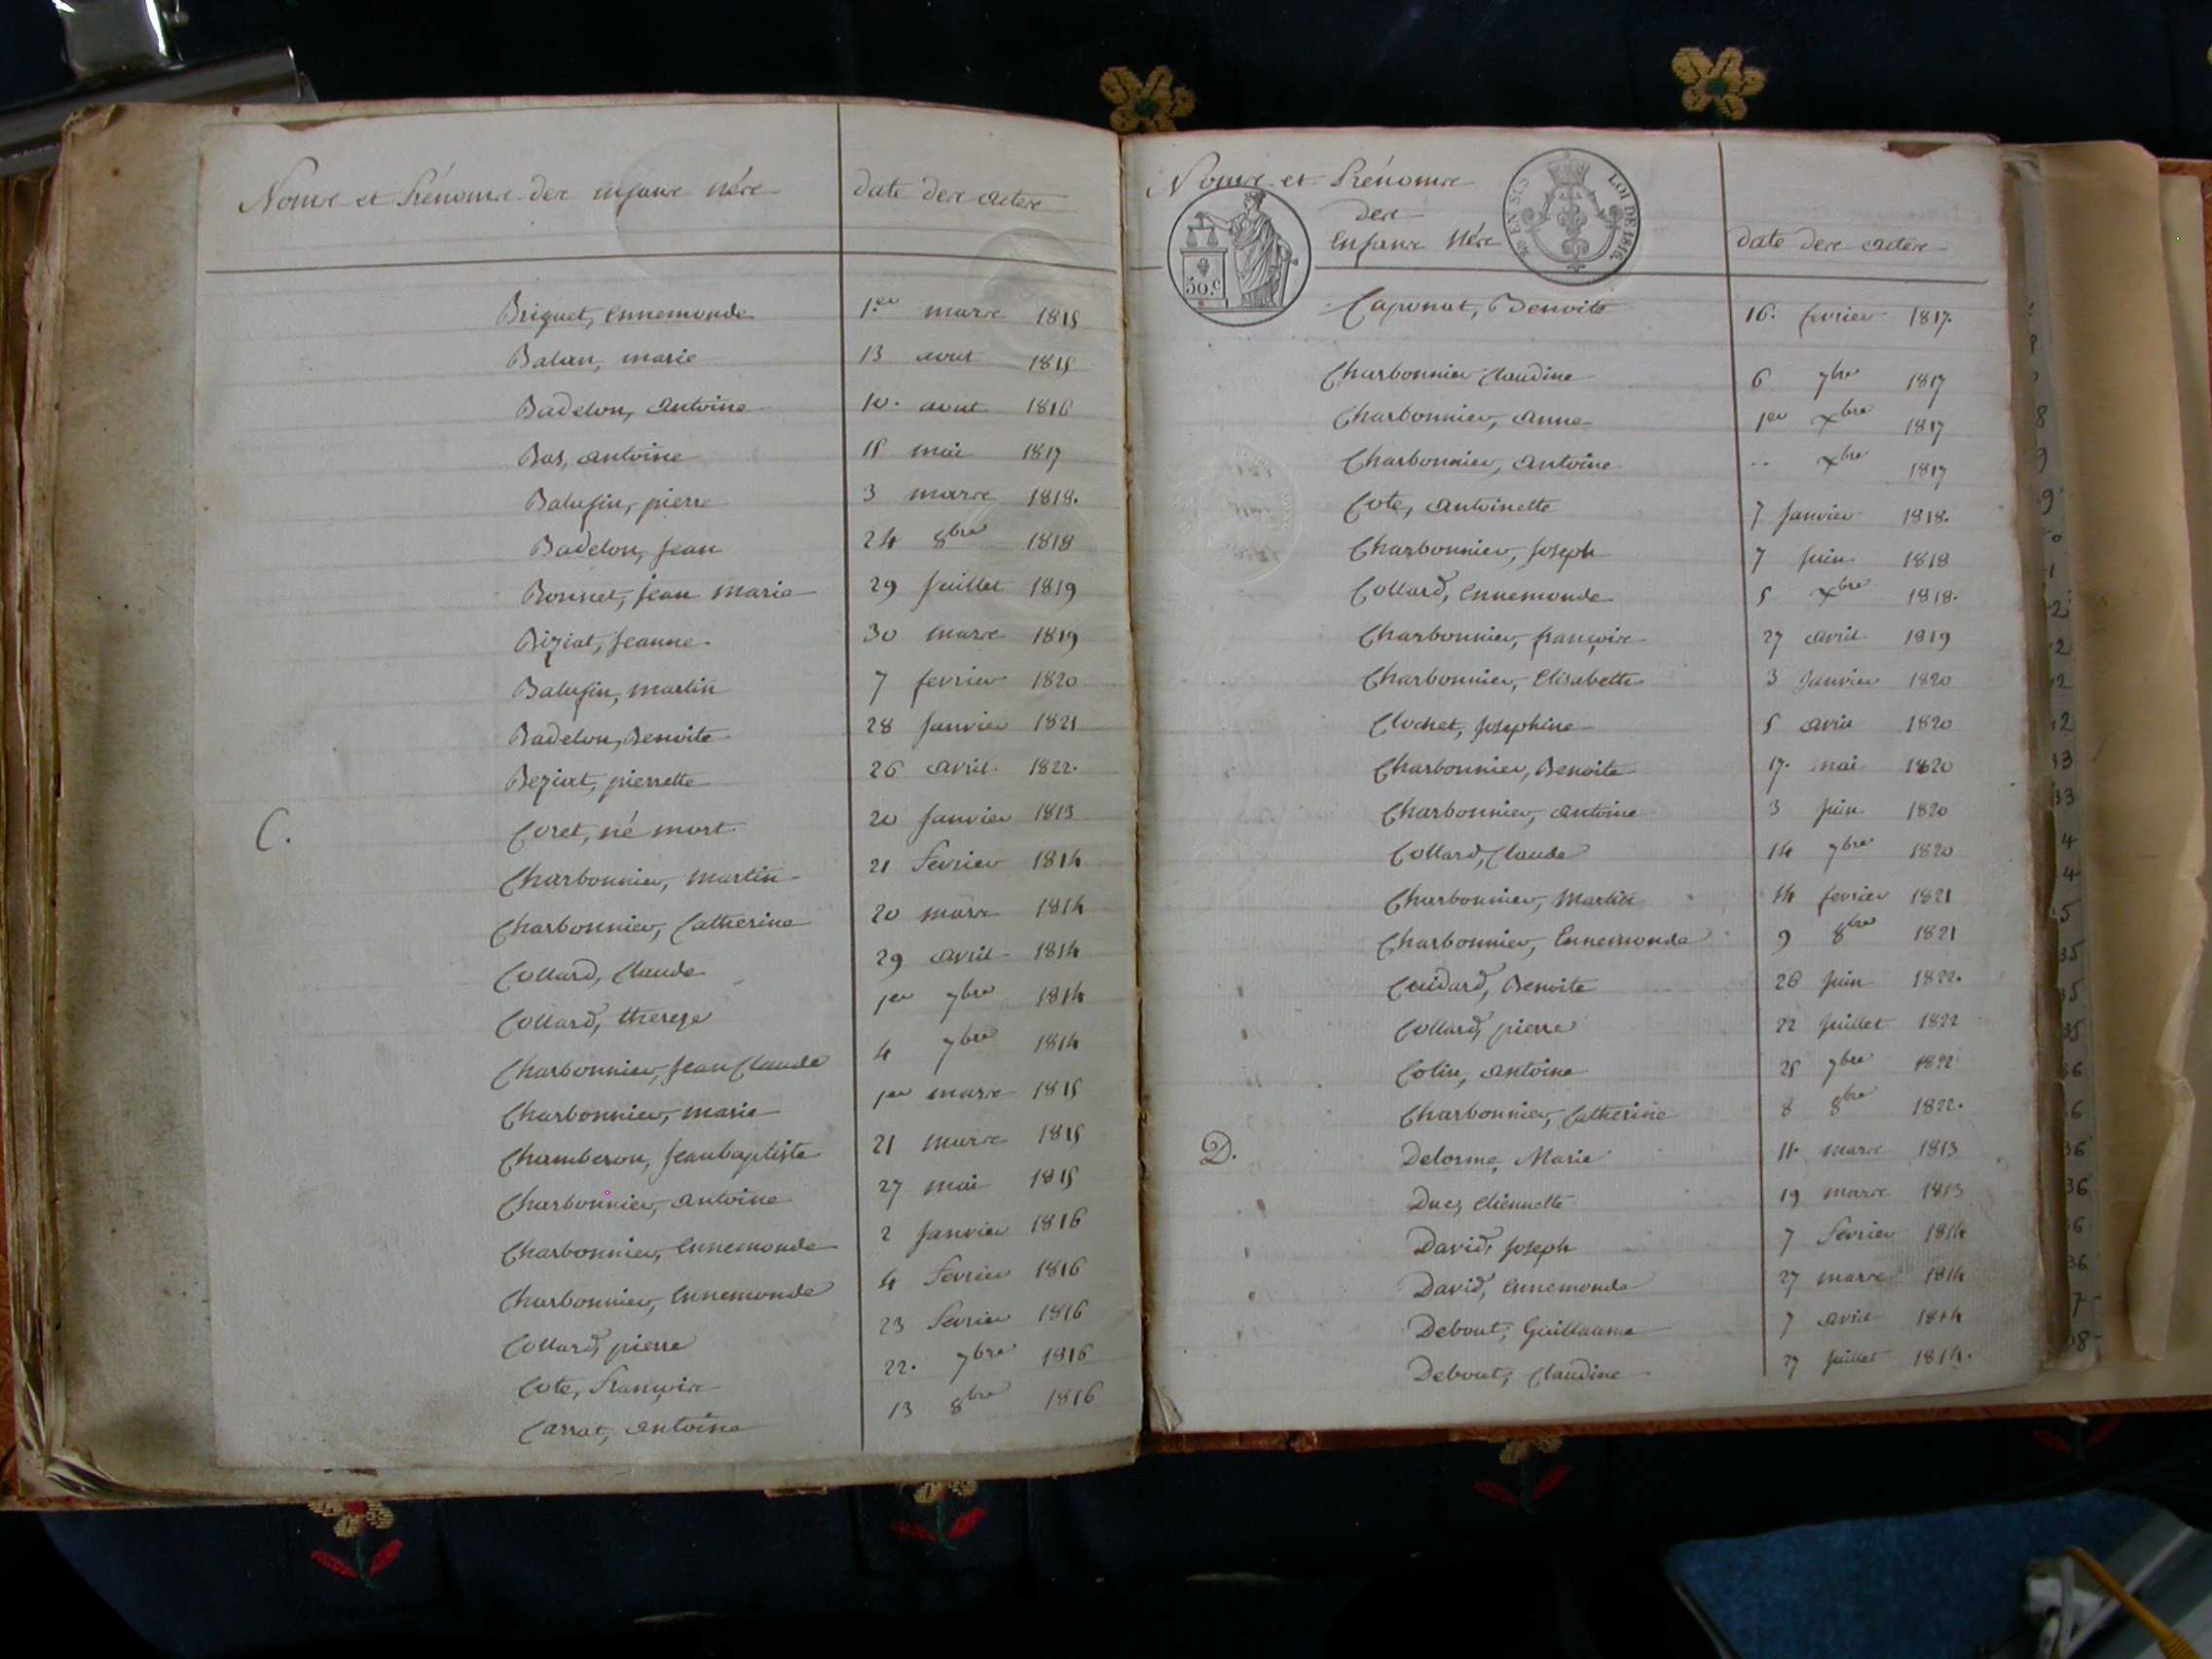 Noms et Prénoms des enfans nés date des actes
Briguet, Ennemonde 1.er mars 1815
Balan, marie 13 aout 1815
Badelon, antoine 10. aout 1816
Bas, antoine 15 mai 1817
Balufin, pierre 3 mars 1818.
Badelon, Jean 24 8bre 1818
Bonnet, jean marie 29 Juillet 1819
Biziat, Jeanne. 30 mars 1819
Balufin, martin 7 fevrier 1820
Badelon, Benoite 28 Janvier 1821
Beziat, pierrette 26 avril 1822.
C. Coret, né mort 20 Janvier 1813
Charbonnier, martin 21 Fevrier 1814
Charbonnier, Catherine 20 mars 1814
Collard, Claude 29 avril 1814
Collard, thereze 1er 7bre 1814
Charbonnier, Jean Claude 4 7bre 1814
Charbonnier, marie 1er mars 1815
Chamberon, Jeanbaptiste 21 mars 1815
Charbonnier, antoine 27 mai 1815
Charbonnier, Ennemonde 2 Janvier 1816
Charbonnier, Ennemonde 4 Fevrier 1816
Collard, pierre 23 Fevrier 1816
Cote, Françoise 22. 7bre 1816
Carrat, antoine 13 8bre 1816
Noms et Prénoms
des
Enfans Nés date des actes
LOI DE 1816.
50.c
Caponat, Benoite 16. fevrier 1817.
Charbonnier Claudine 6 7bre 1817
Charbonnier, anne 1er xbre 1817
Charbonnier, antoine .. xbre 1817
Cote, antoinette 7 Janvier 1818.
Charbonnier, Joseph 7 Juin 1818
Collard, Ennemonde 5 xbre 1818.
Charbonnier, françoise 27 avril 1819
Charbonnier, Elisabeth 3 Janvier 1820
Clochet, Josephine 5 avril 1820
Charbonnier, Benoite 17. mai 1820
Charbonnier, antoine 3 Juin 1820
Collard, Claude 14 7bre 1820
Charbonnier, Martin 14 fevrier 1821
Charbonnier, Ennemonde 9 8bre 1821
Cuidard, Benoite 26 Juin 1822.
Collard, pierre 22 Juillet 1822
Colin, antoine 25 7bre 1822
Charbonnier, Catherine 8 8bre 1822.
D. Delorme, Marie 11. mars 1813
Duc, Etiennette 19 mars 1813
David, Joseph 7 Fevrier 1814
David, Ennemonde 27 mars 1814
Debout, Guillaume 7 avril 1814
Debout, Claudine 27 Juillet 1814.